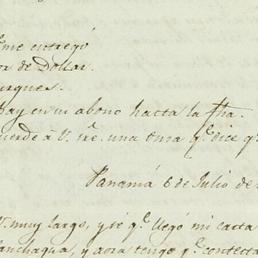 me entregó
or de Dollar.
urques.
hay en su abono hasta la fha.
cuerdo à V. una cosa q.e dice q.e
Panamá 6 de Julio de
V. muy largo, y se q.e llegó mi carta
anchagua, y aora tengo q.e contecta